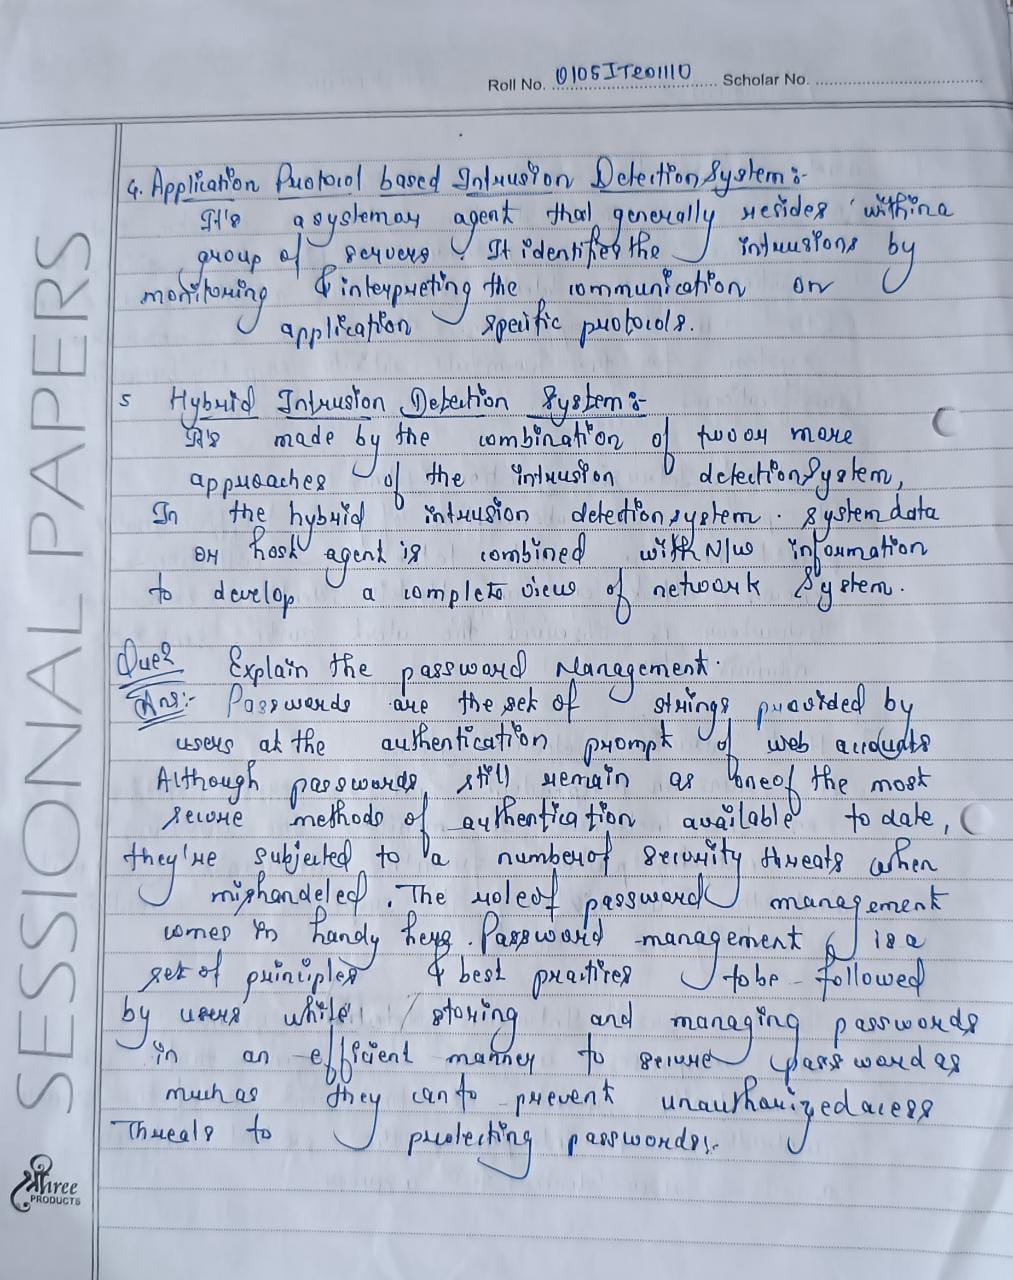 Roll No. 0105IT201110 Scholar No.
SESSIONAL PAPERS
4. Application Protocol based Intrusion Detection System:-
It's a system or agent that generally resides within a
group of servers. It identifies the intrusions by
monitoring & interpreting the communication on
application specific protocols.
5 Hybrid Intrusion Detection System:-
It's made by the combination of two or more
approaches of the intrusion detection System,
In the hybrid intrusion detection system. System data
or host agent is combined with N/w information
to develop a complete view of network System.
Que2 Explain the password Management.
Ans:- Passwords are the set of strings provided by
users at the authentication prompt of web accounts
Although passwords still remain as one of the most
secure methods of authentication available to date,
they're subjected to a number of security threats when
mishandeled. The role of password management
comes in handy here. Password management is a
set of principles & best practices to be followed
by users while storing and managing passwords
in an efficient manner to secure password as
much as they can to prevent unauthorized acess
Threats to protecting passwords:-
Shree
PRODUCTS